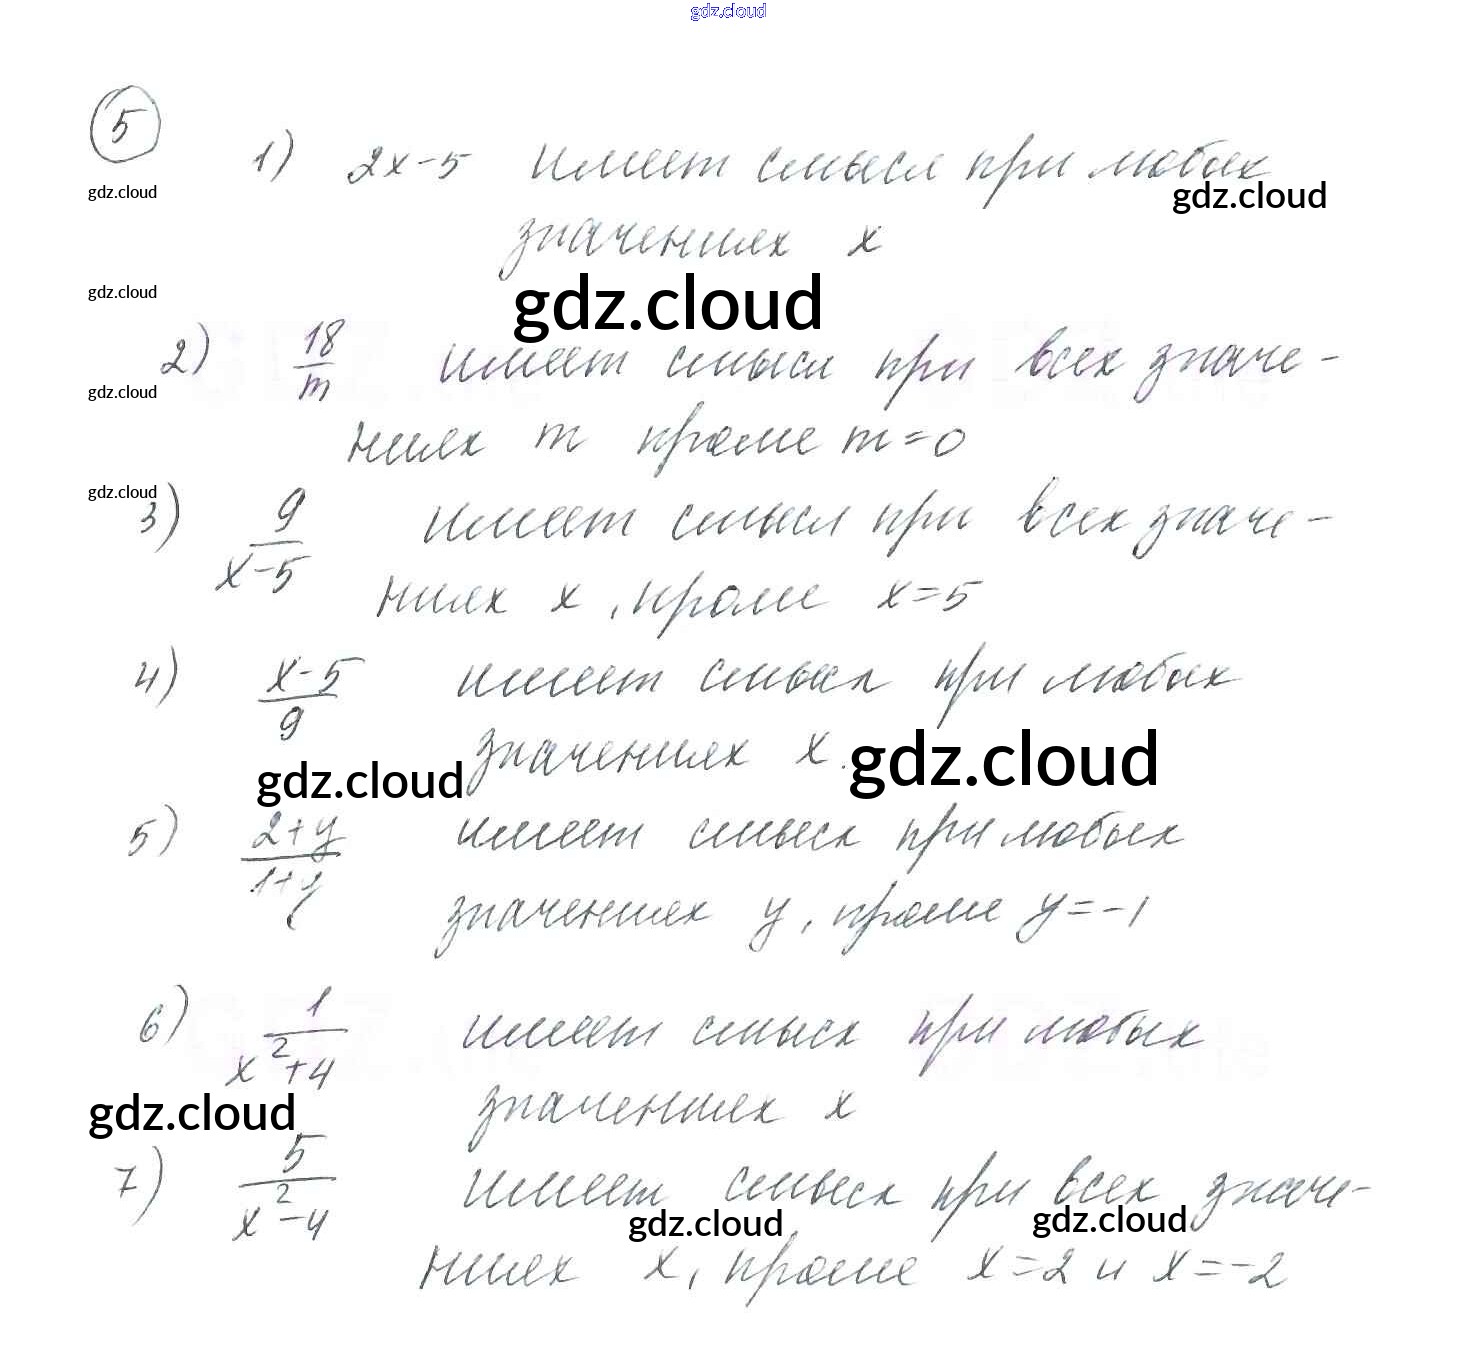 gdz.cloud
5
1) 2x-5 имеет смысл при любых
gdz.cloud
gdz.cloud
значениях x
gdz.cloud
gdz.cloud
2) 18/m имеет смысл при всех значе-
gdz.cloud
ниях m кроме m=0
gdz.cloud
3) 9/(x-5) имеет смысл при всех значе-
ниях x, кроме x=5
4) (x-5)/9 имеет смысл при любых
значениях x.
gdz.cloud
gdz.cloud
5) (2+y)/(1+y) имеет смысл при любых
значениях y, кроме y=-1
6) 1/(x²+4) имеет смысл при любых
значениях x
gdz.cloud
7) 5/(x²-4) имеет смысл при всех значе-
gdz.cloud
gdz.cloud
ниях x, кроме x=2 и x=-2